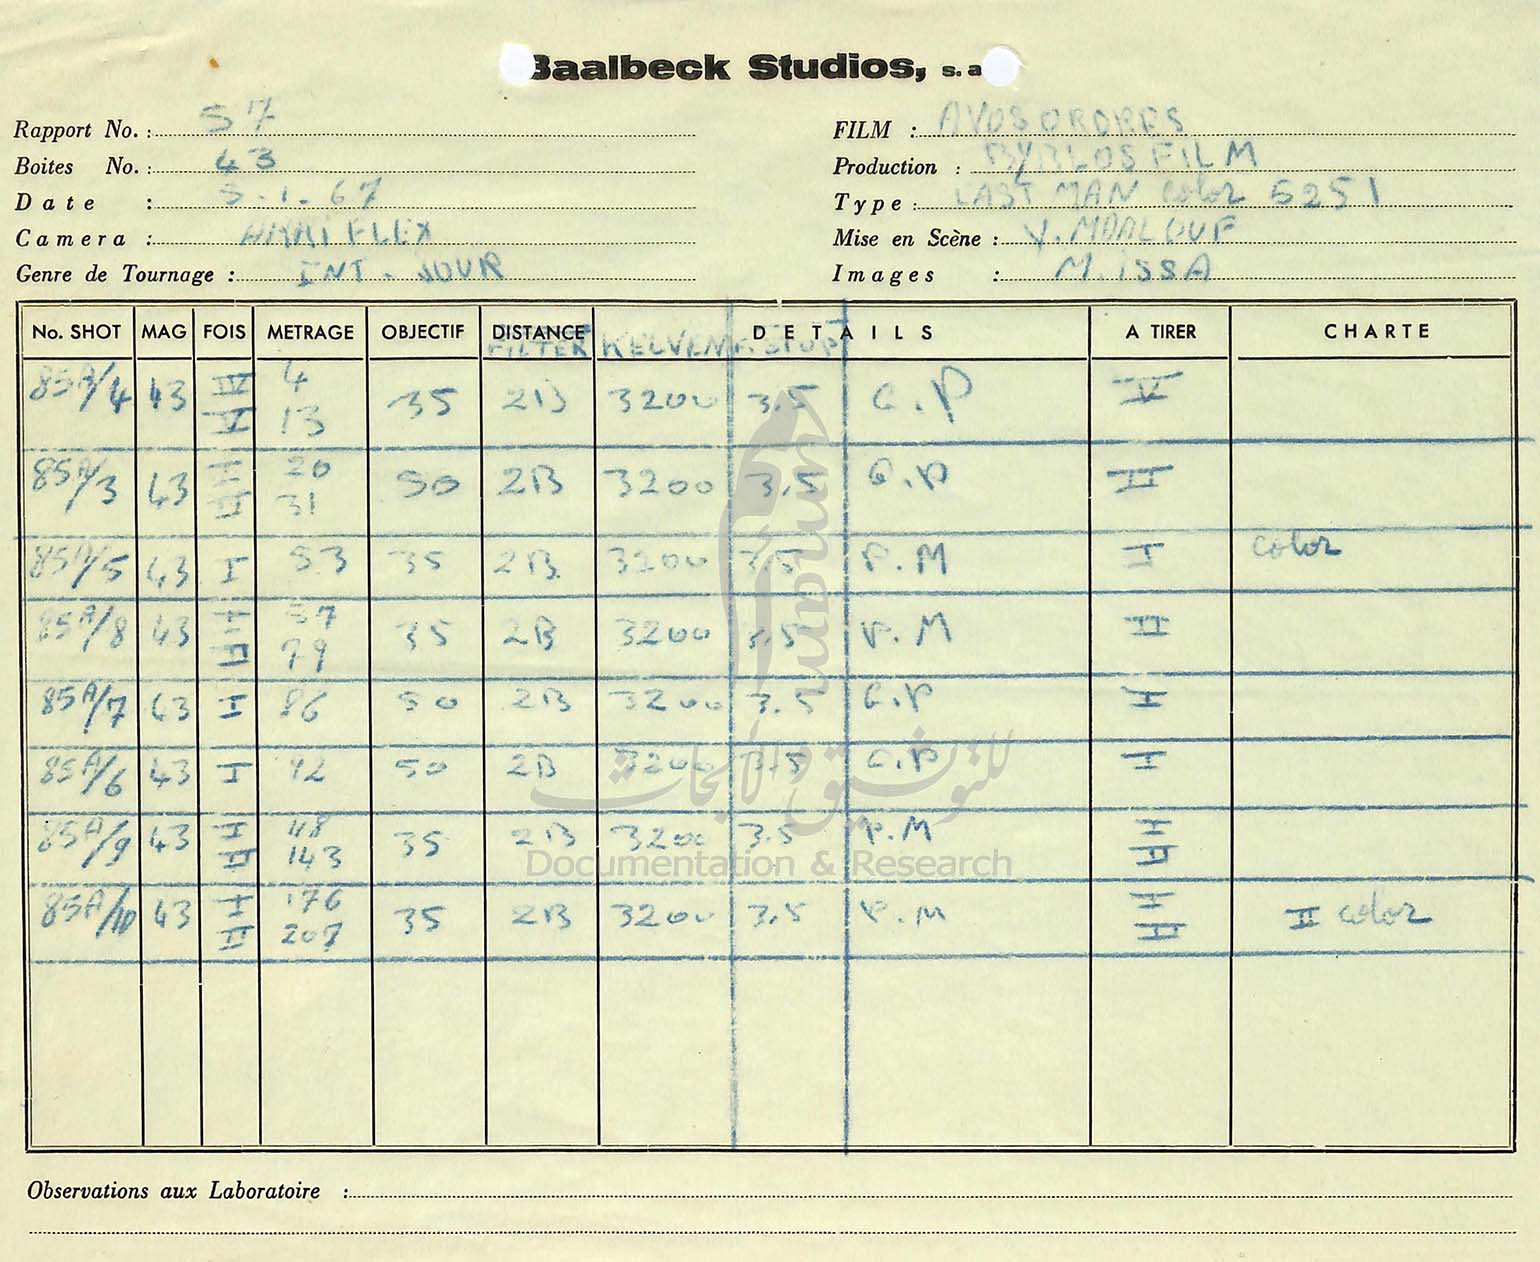 Baalbeck Studios, s.a
Rapport No. : 57
Boites No. : 43
Date : 5.1.67
Camera : ARRI FLEX
Genre de Tournage : INT. JOUR
FILM : AVOS ORDRES
Production : BYBLOS FILM
Type : EAST MAN color 5251
Mise en Scène : Y. MAALOUF
Images : M. ISSA
No. SHOT MAG FOIS METRAGE OBJECTIF DISTANCE DETAILS A TIRER CHARTE
FILTER KELVEN F.STOP
85A/4 43 IV 4 35 2B 3200 3.5 G.P V
V 13
85A/3 43 I 20 50 2B 3200 3.5 G.P II
II 31
85A/5 43 I 53 35 2B 3200 3.5 P.M I color
85A/8 43 I 57 35 2B 3200 3.5 P.M II
II 79
85A/7 43 I 86 50 2B 3200 3.5 G.P I
85A/6 43 I 92 50 2B 3200 3.5 G.P I
85A/9 43 I 118 35 2B 3200 3.5 P.M I
II 143 II
85A/10 43 I 176 35 2B 3200 3.5 P.M I
II 207 II II color
Observations aux Laboratoire :
umam
للتوثيق والأبحاث
Documentation & Research